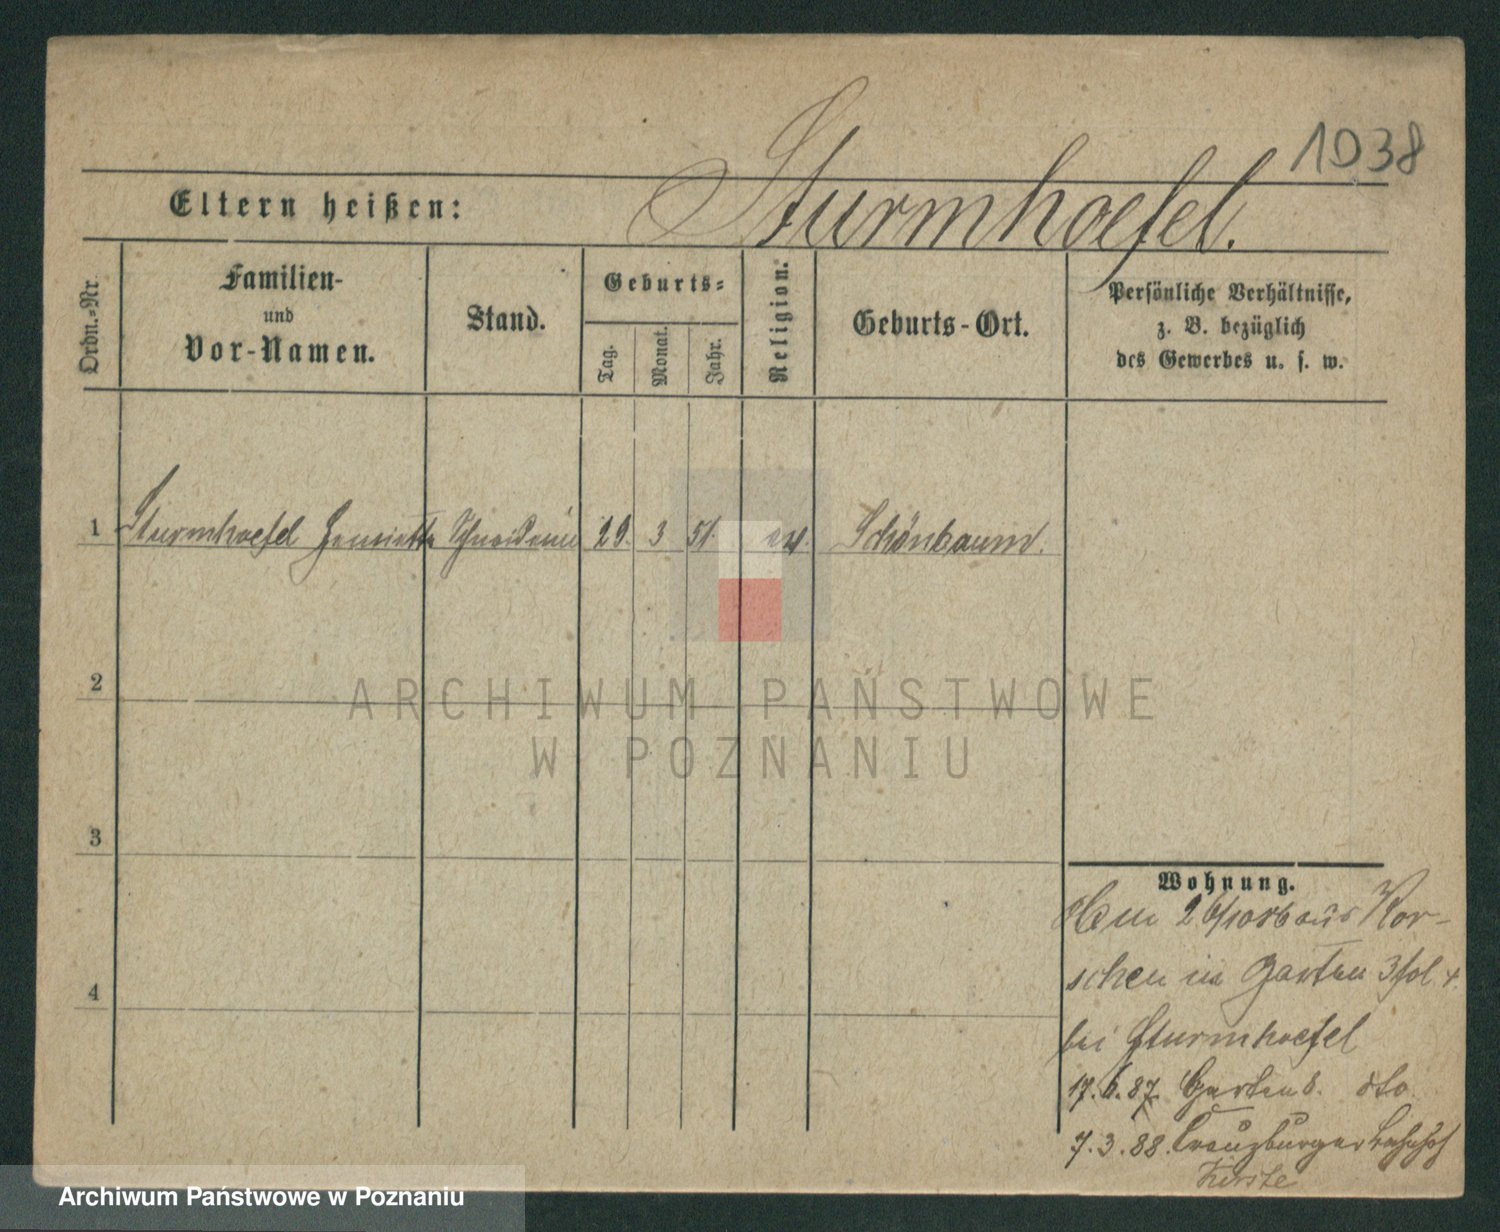 1038
Eltern heißen: Sturmhoefel.
Ordn.-Nr.
Familien-
und
Vor-Namen.
Stand.
Geburts-
Tag.
Monat.
Jahr.
Religion.
Geburts-Ort.
Persönliche Verhältnisse,
z. B. bezüglich
des Gewerbes u. s. w.
1 Sturmhoefel Henriette Schneiderin 29. 3 51. ev. Schönbaum.
2
ARCHIWUM PAŃSTWOWE
W POZNANIU
3
4
Wohnung.
26/10 86 aus Kor-
schen in Garten
bei Sturmhoefel
17. 6. 87. Garten 8. dto
7. 3. 88. Creuzburger Bahnhof
Archiwum Państwowe w Poznaniu